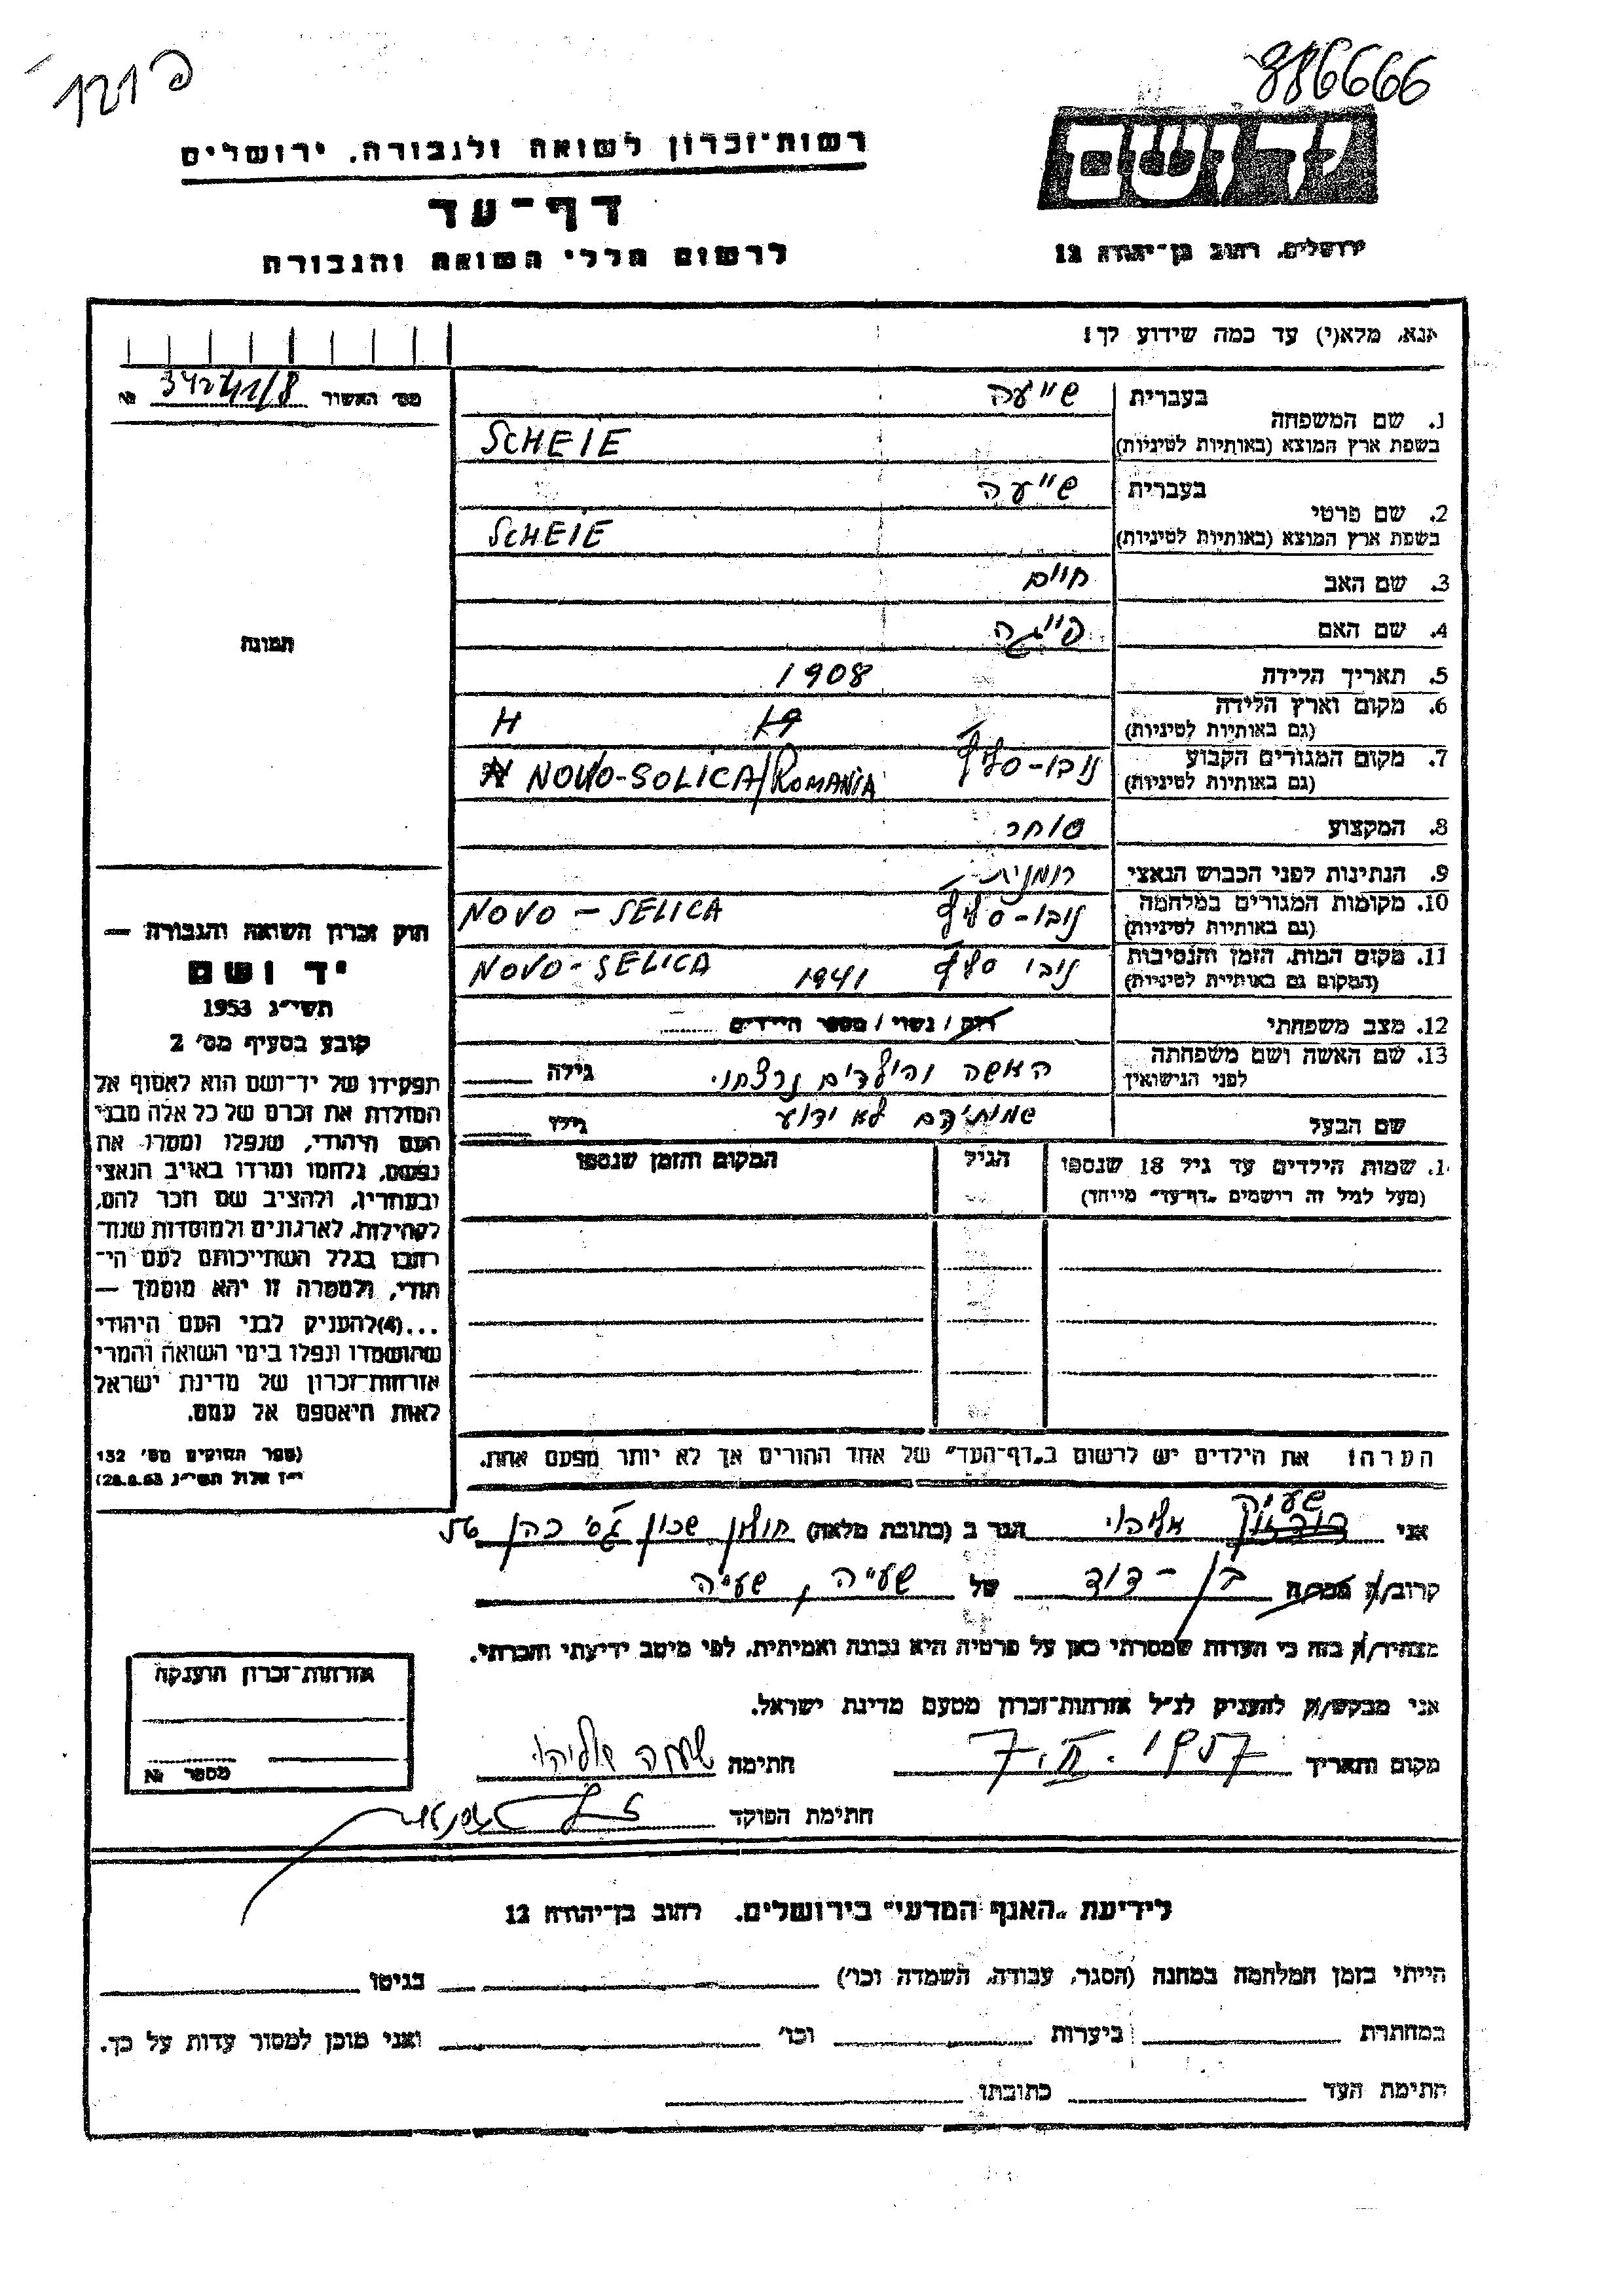 886666
רשות־זכרון לשואה ולגבורה, ירושלים
יד ושם
דף־עד
ירושלים, רחוב בן־יהודה 12
לרשום חללי השואה והגבורה
אנא, מלא(י) עד כמה שידוע לך!
מס׳ האשור № 342741/8
1. שם המשפחה
בעברית שייעה
בשפת ארץ המוצא (באותיות לטיניות) SCHEIE
2. שם פרטי
בעברית שייעה
בשפת ארץ המוצא (באותיות לטיניות) SCHEIE
3. שם האב חיים
4. שם האם פייגה
תמונה
5. תאריך הלידה 1908
6. מקום וארץ הלידה
(גם באותיות לטיניות)
7. מקום המגורים הקבוע נובו-סליץ
(גם באותיות לטיניות) NOVO-SOLICA/ROMANIA
8. המקצוע סוחר
9. הנתינות לפני הכבוש הנאצי רומנית
10. מקומות המגורים במלחמה נובו-סליץ NOVO-SELICA
(גם באותיות לטיניות)
11. מקום המות, הזמן והנסיבות נובו סליץ 1941 NOVO-SELICA
(המקום גם באותיות לטיניות)
12. מצב משפחתי רווק / נשוי / מספר הילדים
13. שם האשה ושם משפחתה האשה והילדים נרצחו גילה
לפני הנישואין
שם הבעל שמותיהם לא ידוע גילו
שמות הילדים עד גיל 18 שנספו הגיל המקום והזמן שנספו
(מעל לגיל זה רושמים „דף־עד״ מיוחד)
חוק זכרון השואה והגבורה —
יד ושם
תשי״ג 1953
קובע בסעיף מס׳ 2
תפקידו של יד־ושם הוא לאסוף אל
המולדת את זכרם של כל אלה מבני
העם היהודי, שנפלו ומסרו את
נפשם, נלחמו ומרדו באויב הנאצי
ובעוזריו, ולהציב שם וזכר להם,
לקהילות, לארגונים ולמוסדות שנח־
רבו בגלל השתייכותם לעם הי־
הודי, ולמטרה זו יהא מוסמך —
...(4) להעניק לבני העם היהודי
שהושמדו ונפלו בימי השואה והמרי
אזרחות־זכרון של מדינת ישראל
לאות היאספם אל עמם.
(ספר החוקים מס׳ 132
י״ז אלול תשי״ג 28.8.53)
הערה! את הילדים יש לרשום ב„דף־העד״ של אחד ההורים אך לא יותר מפעם אחת.
אני אליהו הגר ב (כתובת מלאה) חולון שכון ג'סי כהן
קרוב/ה מכר/ה בן-דוד של שעייה, שעייה
מצהיר/ה בזה כי העדות שמסרתי כאן על פרטיה היא נכונה ואמיתית, לפי מיטב ידיעתי והכרתי.
אני מבקש/ת להעניק לנ״ל אזרחות־זכרון מטעם מדינת ישראל.
מקום ותאריך 1957 חתימה
חתימת הפוקד
אזרחות־זכרון הוענקה
מספר №
לידיעת „האגף המדעי״ בירושלים, רחוב בן־יהודה 12
הייתי בזמן המלחמה במחנה (הסגר, עבודה, השמדה וכו׳) בגיטו
במחתרת ביערות וכו׳ ואני מוכן למסור עדות על כך.
חתימת העד כתובתו